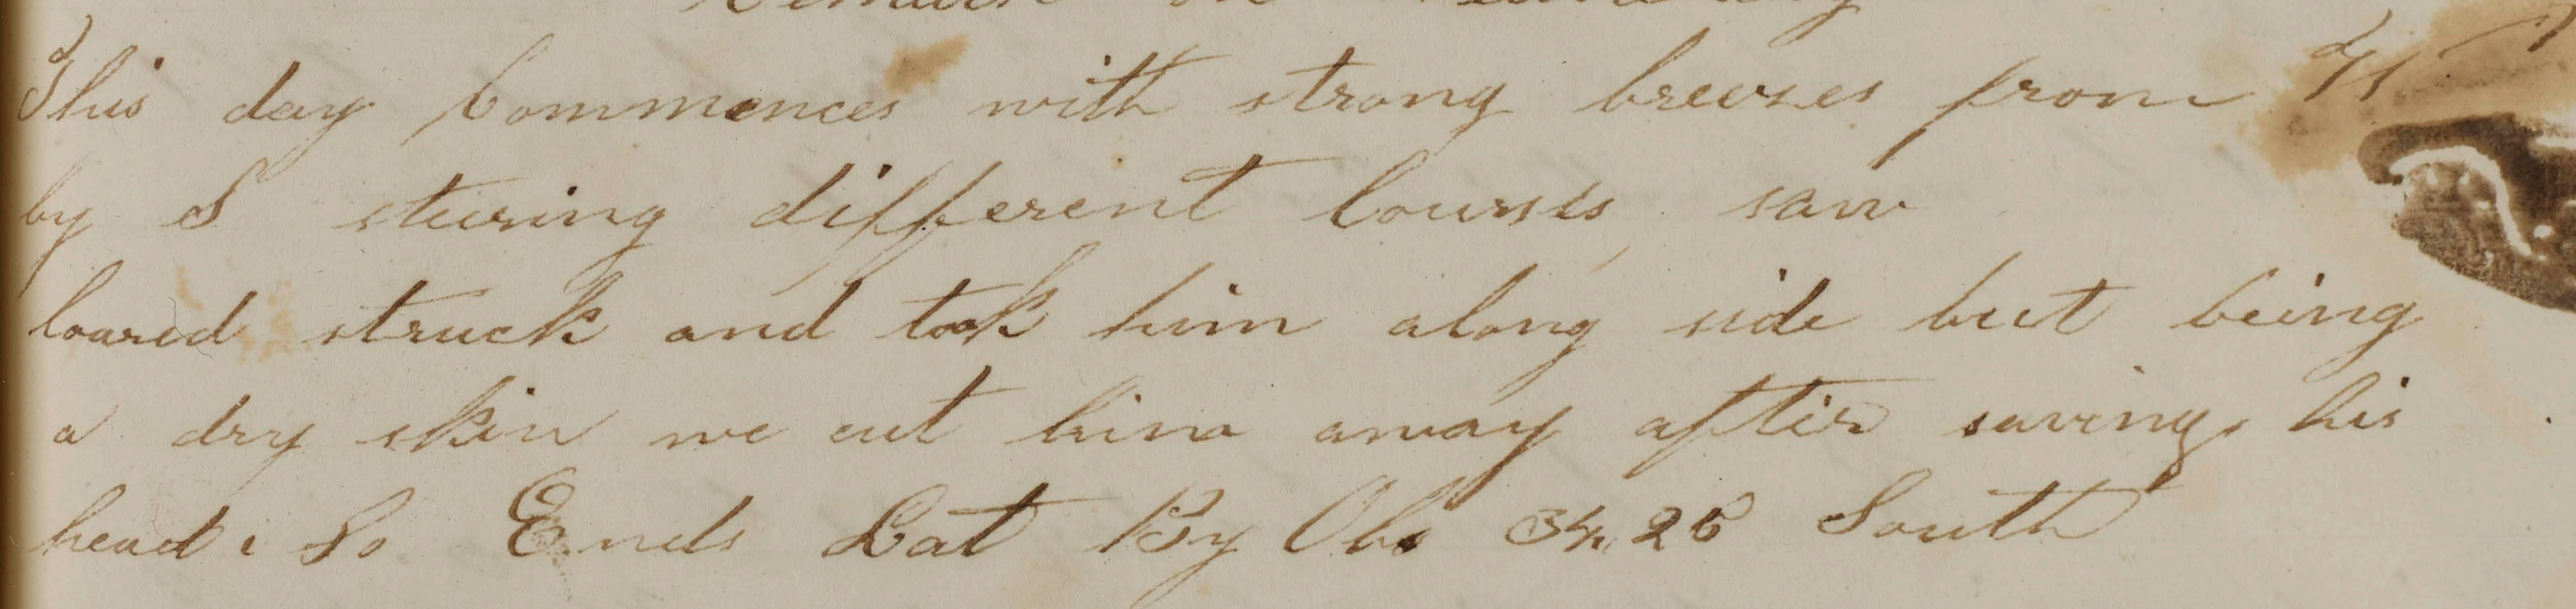 Remarks on
This day Commences with strong breezes from
by S steering different Courses saw
loared struck and took him along side but being
a dry skin we cut him away after saving his
head. So Ends Lat By Obs 34,25 South